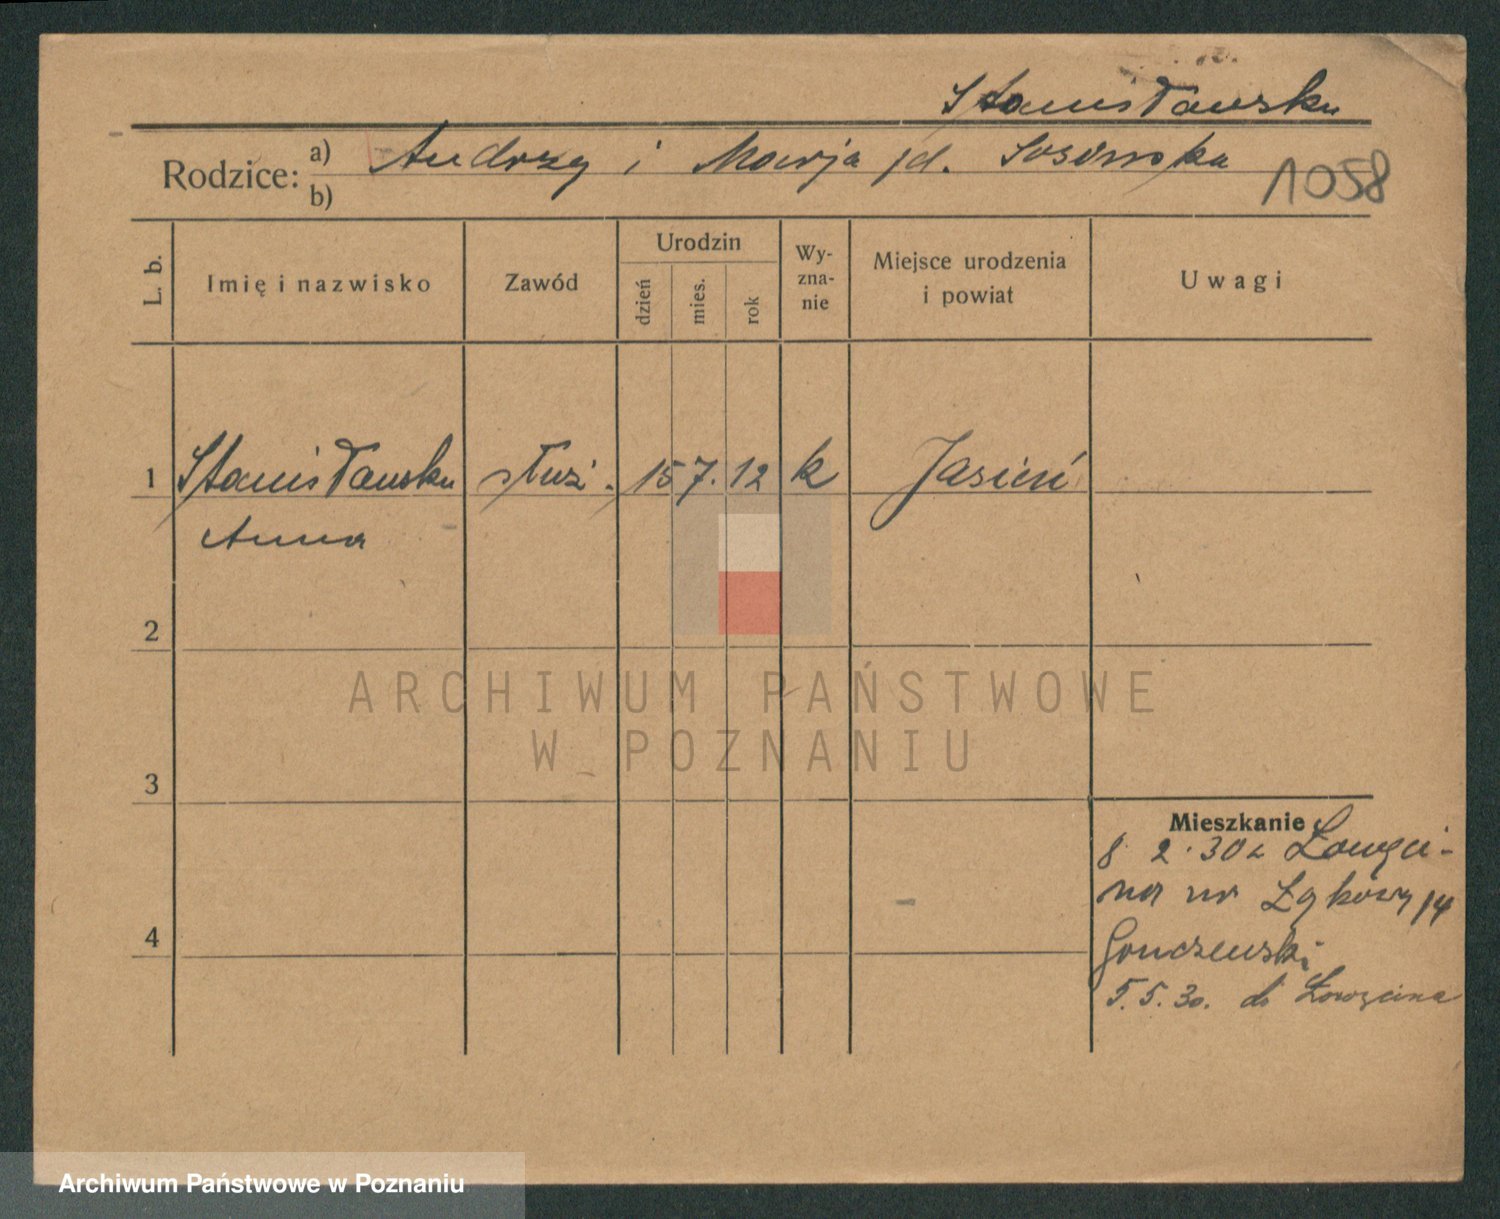 Stanisławska
Rodzice: a) Andrzej i Marja
b)
1058
L. b.
Imię i nazwisko
Zawód
Urodzin
dzień
mies.
rok
Wy-
zna-
nie
Miejsce urodzenia
i powiat
Uwagi
1 Stanisławska służ. 15 7. 12 k Jasień
Anna
2
ARCHIWUM PAŃSTWOWE
W POZNANIU
3
Mieszkanie
8 2.30 z
na
4
5.5.30. do
Archiwum Państwowe w Poznaniu